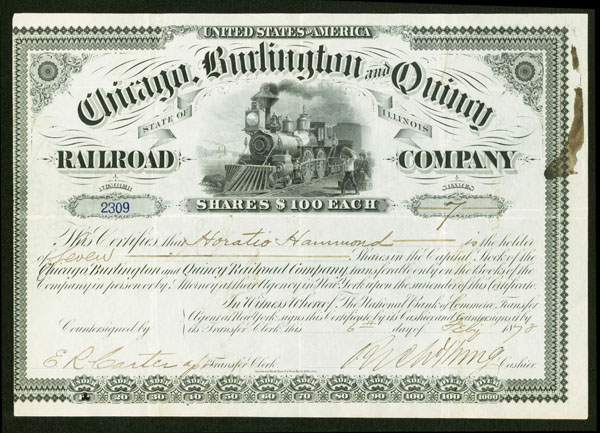 UNITED STATES OF AMERICA
Chicago, Burlington and Quincy
STATE OF ILLINOIS
RAILROAD COMPANY
NUMBER SHARES
2309 7
SHARES $100 EACH
This Certifies that Horatio Hammond is the holder
of Seven Shares in the Capital Stock of the
Chicago Burlington and Quincy Railroad Company, transferable only on the Books of the
Company in person or by Attorney at their Agency in New York upon the surrender of this Certificate.
In Witness Whereof The National Bank of Commerce, Transfer
Agent at New York signs this Certificate by its Cashier and Countersigns it by
Countersigned by its Transfer Clerk this 6th day of Feby 1878
E R Carter Transfer Clerk Cashier
1 10 20 30 40 50 60 70 80 90 100 200 300 400 500 1000